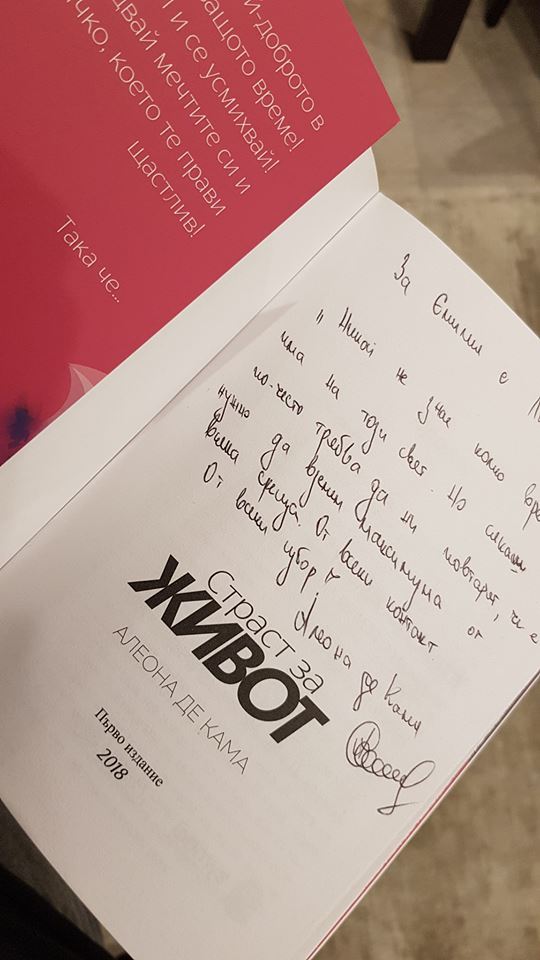 й-доброто в
ващото време!
и се усмихвай!
двай мечтите си и
чко, което те прави
щастлив!
Така че...
За Емилия с
"Никой не знае колко
има на този свят. Но сякаш
по-често трябва да ни повтарят, че е
нужно да вземем максимума от
всяка среща. От всеки контакт.
От всеки избор!"
Алеона де Кама
Страст за
ЖИВОТ
АЛЕОНА ДЕ КАМА
Първо издание
2018